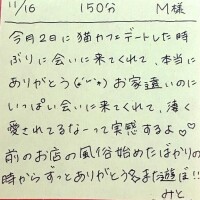 11/16 150分 M様
今月2日に猫カフェデートした時
ぶりに会いに来てくれて、本当に
ありがとう(*´˘`*) お家遠いのに
いっぱい会いに来てくれて、凄く
愛されてるなーって実感するよ♡♡
前のお店の風俗始めたばかりの
時からずっとありがとう また遊ぼ!!
みと